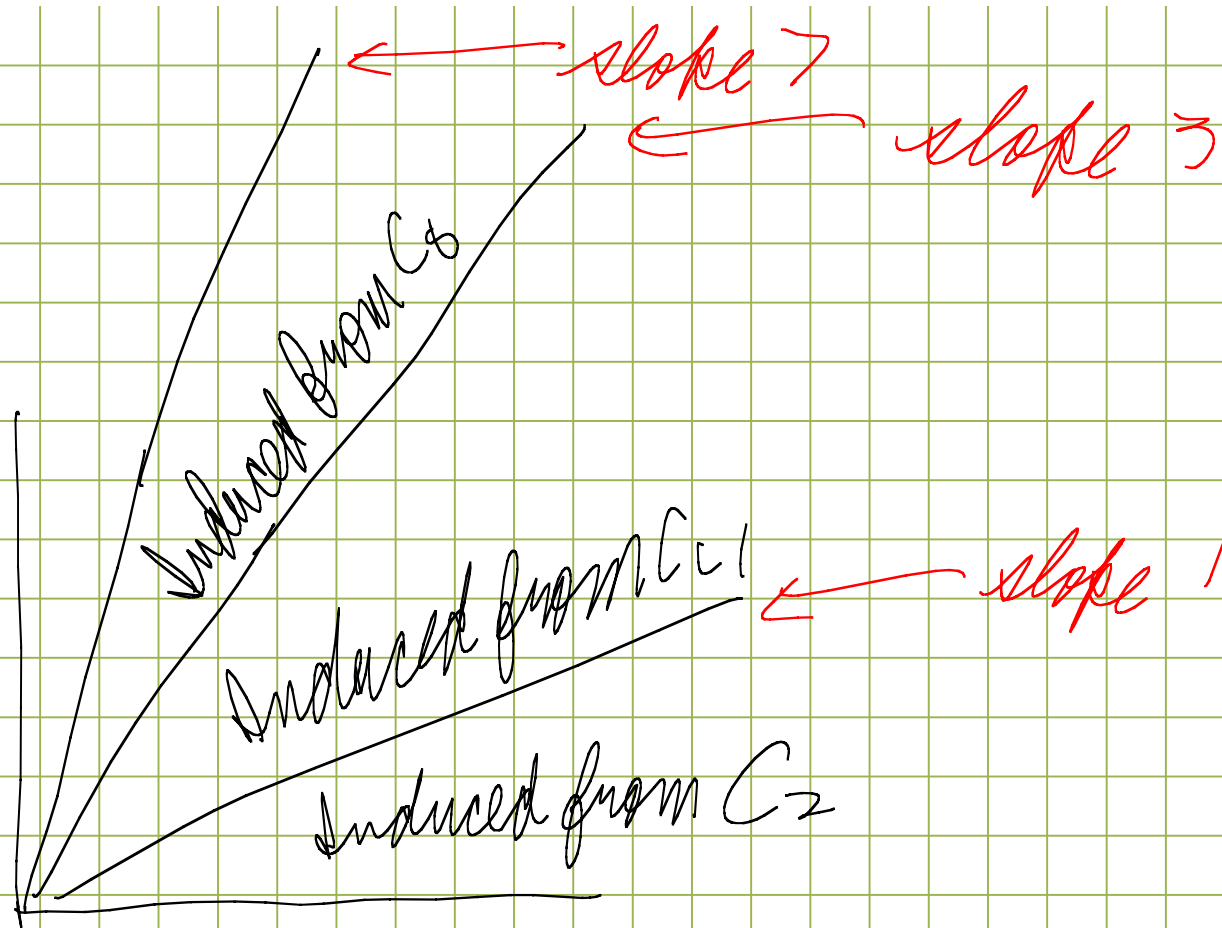 slope 7
slope 3
Induced from C8
Induced from C4
slope 1
Induced from C2